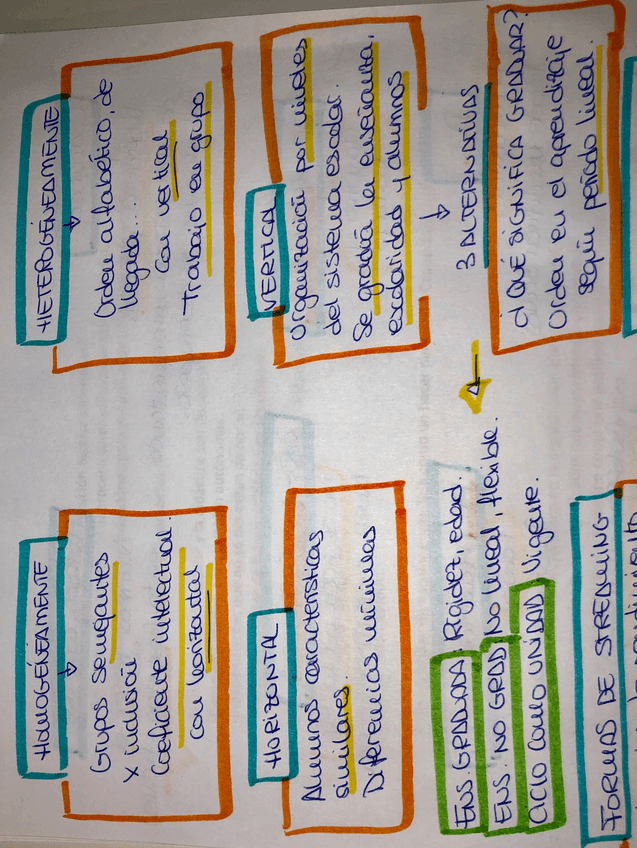 HOMOGÉNEAMENTE
Grupos semejantes
x inclusión
Coeficiente intelectual.
con horizontal
HETEROGÉNEAMENTE
Orden alfabético, de
llegada...
Con vertical
Trabajo en grupo
HORIZONTAL
Alumnos características
similares.
Diferencias mínimas
VERTICAL
Organización por niveles
del sistema escolar.
Se gradúa la enseñanza,
escolaridad y alumnos
3 ALTERNATIVAS
ENS. GRADUADA: Rigidez, edad.
ENS. NO GRAD: No lineal, flexible.
CICLO COMO UNIDAD Vigente.
¿QUÉ SIGNIFICA GRADUAR?
Orden en el aprendizaje
según período lineal.
FORMAS DE STREAMING